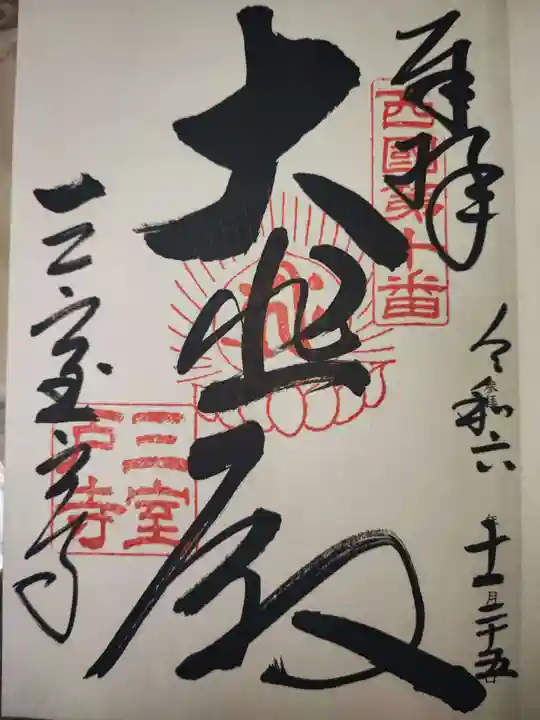 奉拝
西國第十番
令和六年十一月二十五日
大悲殿
三室戸寺
三室戸寺